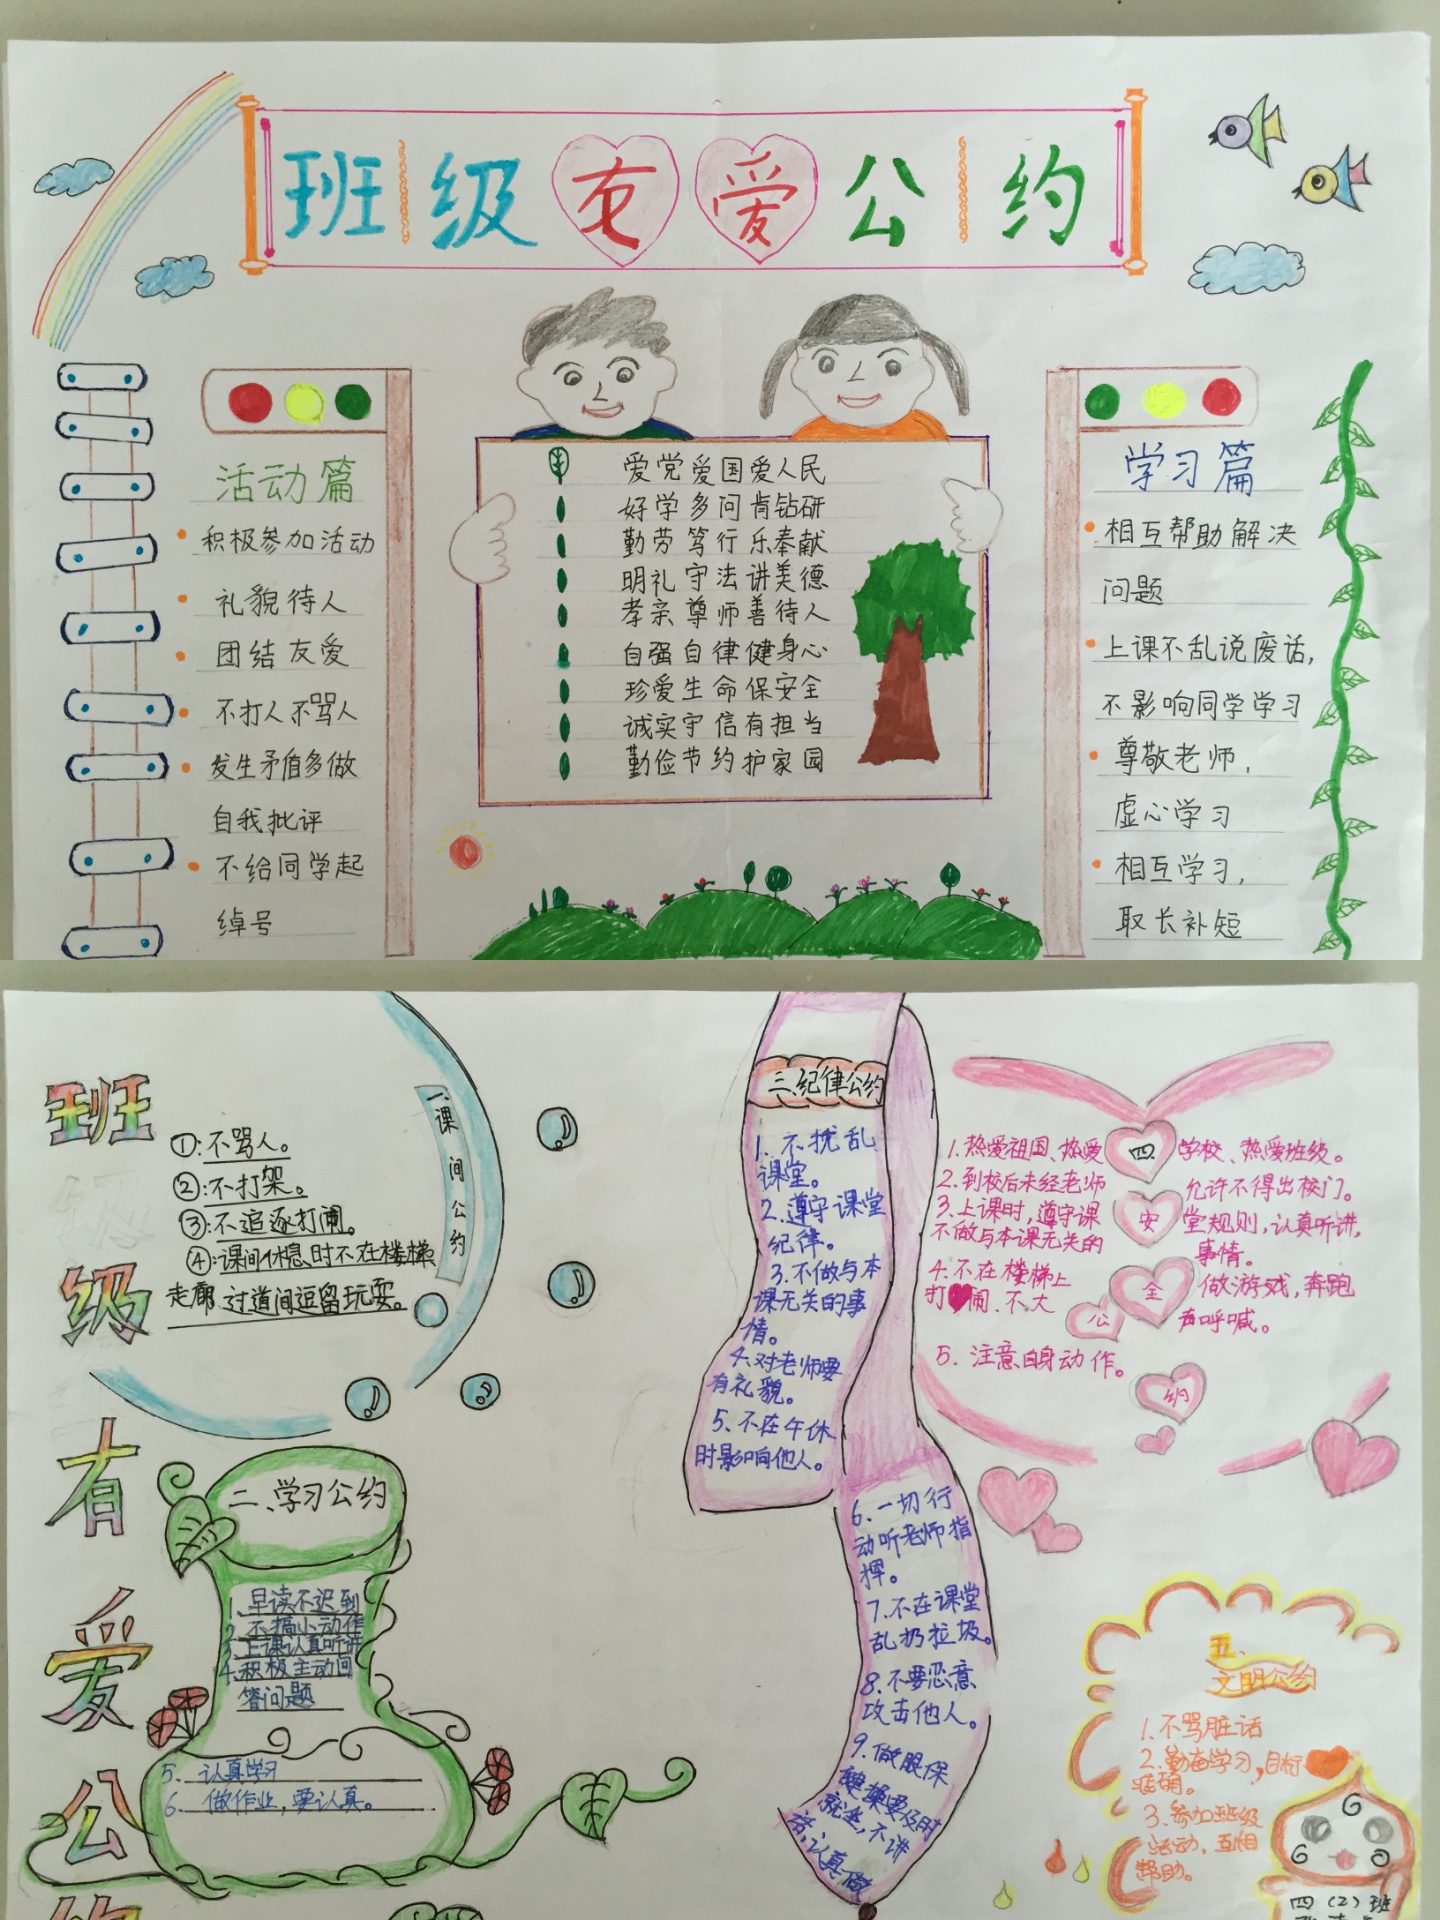 班级友爱公约
活动篇
积极参加活动
礼貌待人
团结友爱
不打人不骂人
发生矛盾多做
自我批评
不给同学起
绰号
爱党爱国爱人民
好学多问肯钻研
勤劳笃行乐奉献
明礼守法讲美德
孝亲尊师善待人
自强自律健身心
珍爱生命保安全
诚实守信有担当
勤俭节约护家园
学习篇
相互帮助解决
问题
上课不乱说废话,
不影响同学学习
尊敬老师,
虚心学习
相互学习,
取长补短
班级有爱公约
一.课间公约
①:不骂人。
②:不打架。
③:不追逐打闹。
④:课间休息时不在楼梯
走廊、过道间逗留玩耍。
二、学习公约
1、早读不迟到
2、不搞小动作
3、上课认真听讲
4.积极主动回
答问题
5. 认真学习
6. 做作业,要认真。
三.纪律公约
1、不扰乱
课堂。
2、遵守课堂
纪律。
3、不做与本
课无关的事
情。
4、对老师要
有礼貌。
5、不在午休
时影响他人。
6、一切行
动听老师指
挥。
7、不在课堂
乱扔垃圾。
8、不要恶意
攻击他人。
9、做眼保
健操要及时
就坐,不讲
话,认真做
四安全公约
1.热爱祖国、热爱学校、热爱班级。
2.到校后未经老师允许不得出校门。
3.上课时,遵守课堂规则,认真听讲,
不做与本课无关的事情。
4.不在楼梯上做游戏,奔跑
打闹、不大声呼喊。
5.注意自身动作。
五、
文明公约
1.不骂脏话
2.勤奋学习,目标
准确。
3.参加班级
活动,互相
帮助。
四(2)班